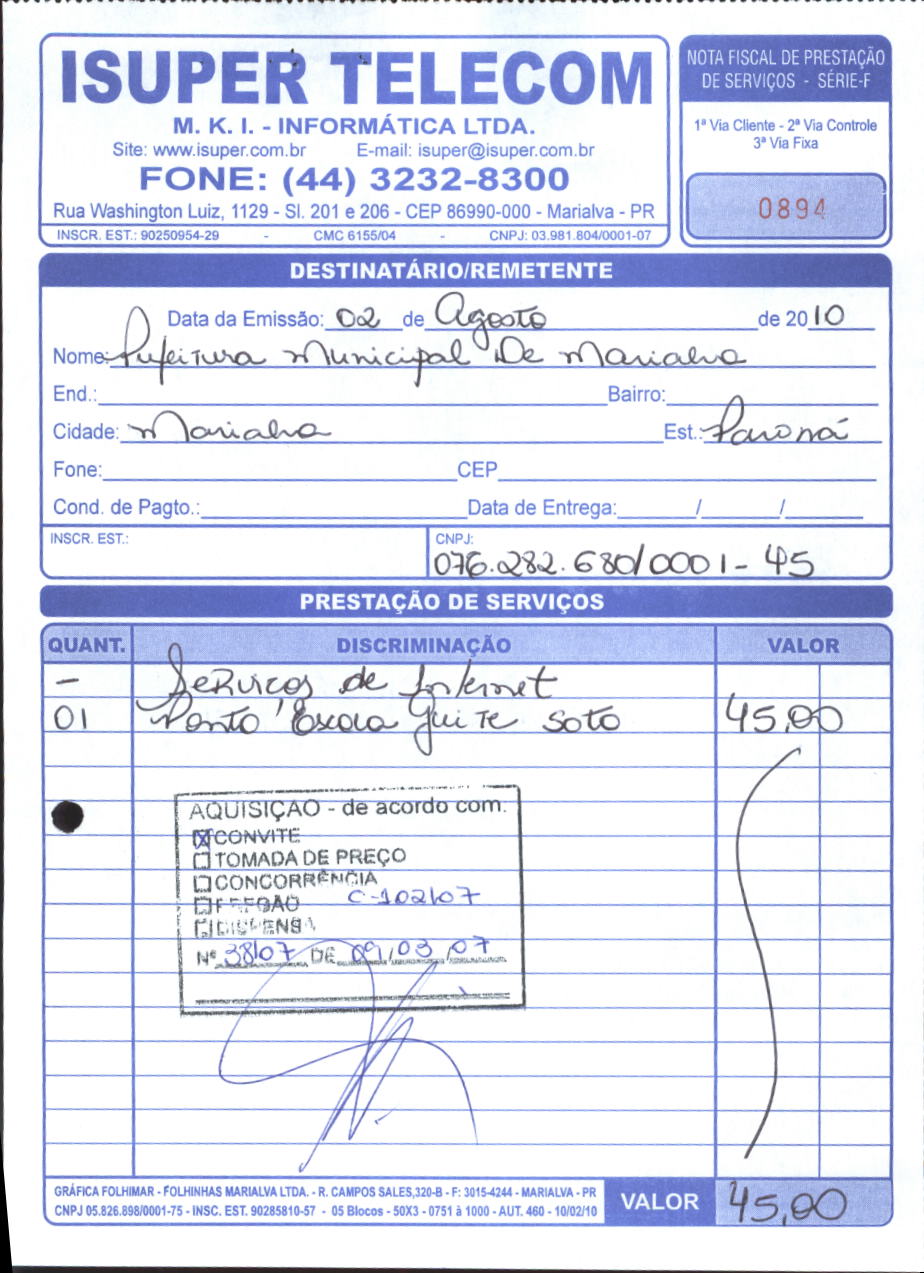 ISUPER TELECOM
M. K. I. - INFORMÁTICA LTDA.
Site: www.isuper.com.br E-mail: isuper@isuper.com.br
FONE: (44) 3232-8300
Rua Washington Luiz, 1129 - Sl. 201 e 206 - CEP 86990-000 - Marialva - PR
INSCR. EST.: 90250954-29 - CMC 6155/04 - CNPJ: 03.981.804/0001-07
NOTA FISCAL DE PRESTAÇÃO
DE SERVIÇOS - SÉRIE-F
1ª Via Cliente - 2ª Via Controle
3ª Via Fixa
0894
DESTINATÁRIO/REMETENTE
Data da Emissão: 02 de Agosto de 2010
Nome: Prefeitura Municipal De Marialva
End.: Bairro:
Cidade: Marialva Est.: Paraná
Fone: CEP
Cond. de Pagto.: Data de Entrega: / /
INSCR. EST.: CNPJ:
076.282.680/0001-45
PRESTAÇÃO DE SERVIÇOS
QUANT. DISCRIMINAÇÃO VALOR
- Serviços de Internet
01 Ponto Escola Guite Soto 45,00
AQUISIÇÃO - de acordo com:
CONVITE
TOMADA DE PREÇO
CONCORRÊNCIA
PREGÃO C-102/07
DISPENSA
Nº 38/07 DE 09/03/07
GRÁFICA FOLHIMAR - FOLHINHAS MARIALVA LTDA. - R. CAMPOS SALES,320-B - F: 3015-4244 - MARIALVA - PR
CNPJ 05.826.898/0001-75 - INSC. EST. 90285810-57 - 05 Blocos - 50X3 - 0751 à 1000 - AUT. 460 - 10/02/10
VALOR 45,00